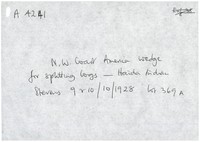 A 4241
N.W. Coast America wedge
for splitting logs — Haida Indian
Stevens 9 & 10/10/1928 lot 369A